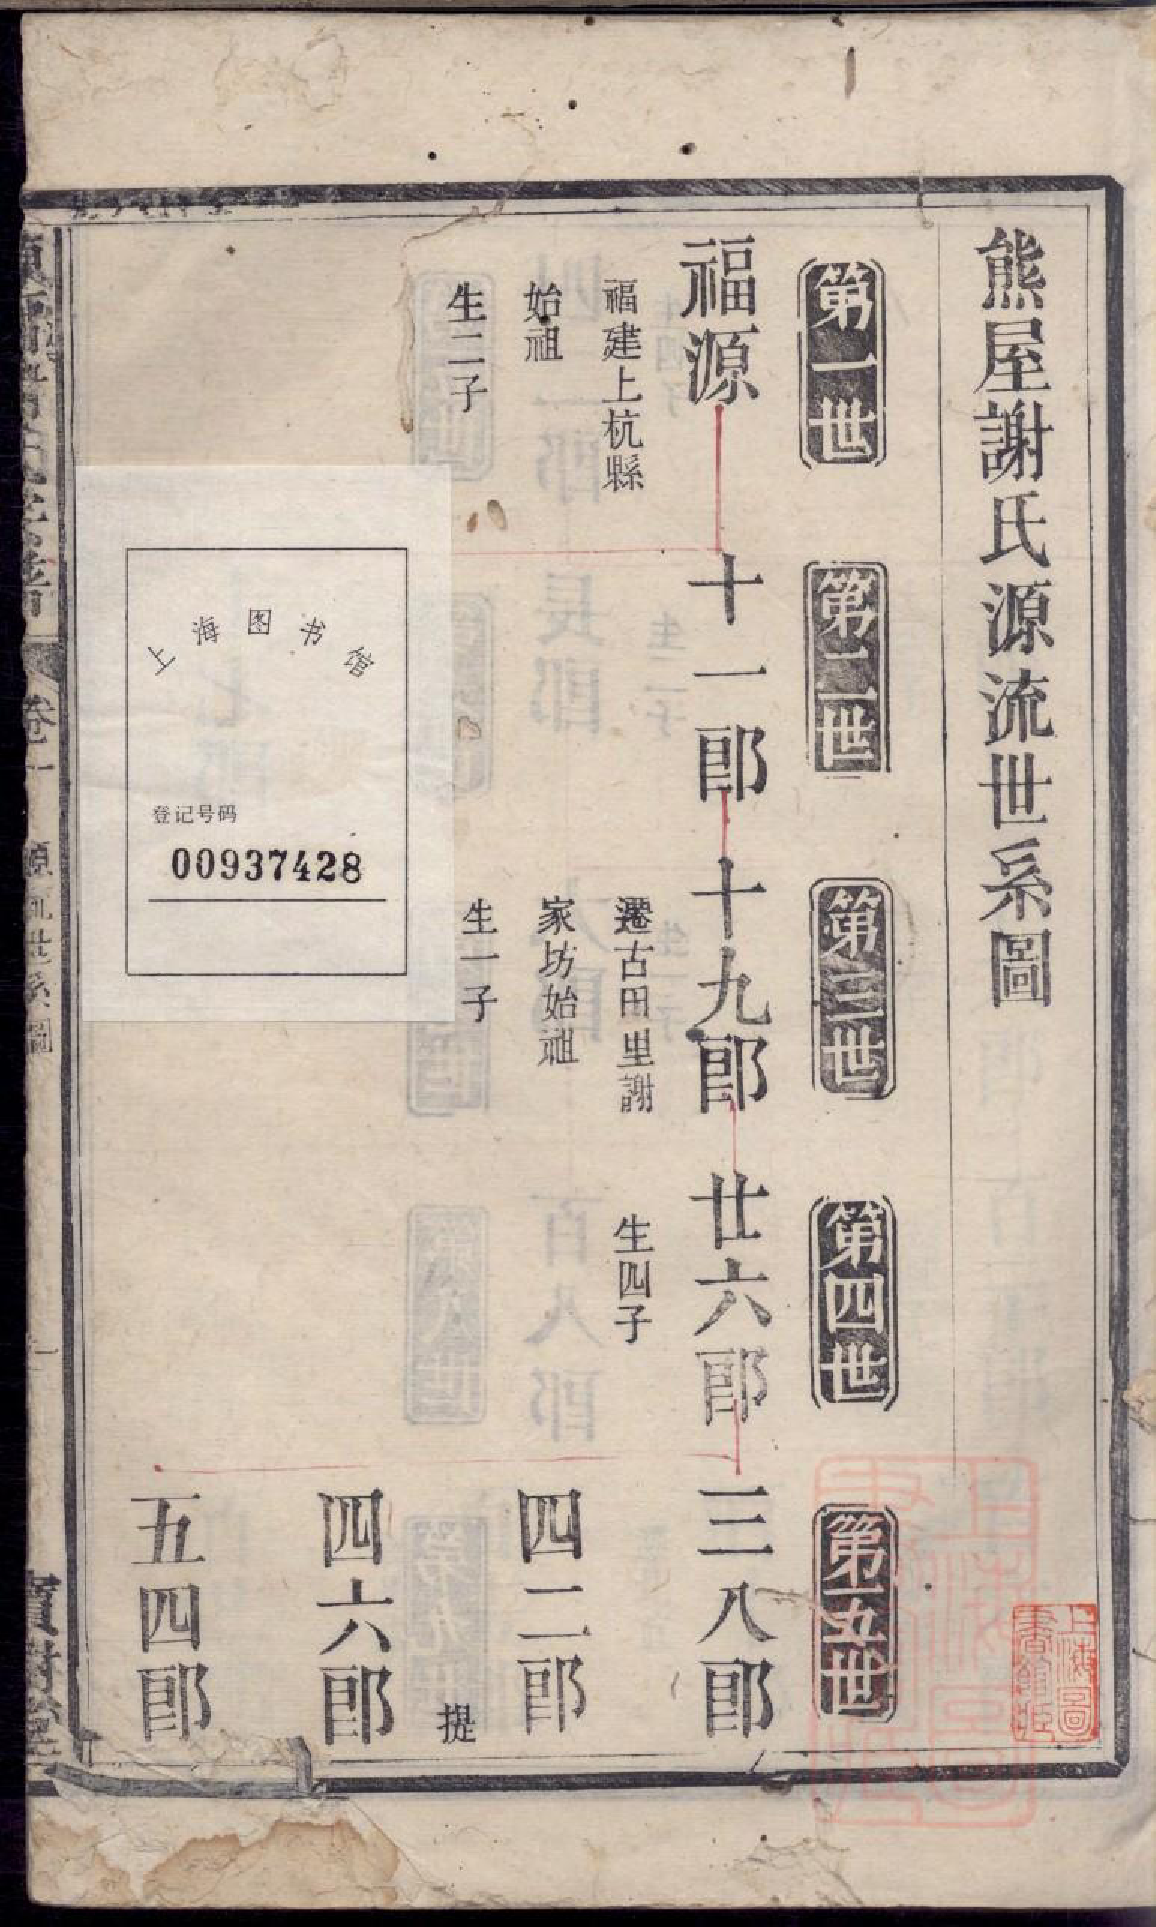 熊屋謝氏源流世系圖
第一世
第二世
第三世
第四世
第五世
福源
十一郎
十九郎
廿六郎
三八郎
福建上杭縣
始祖
生二子
遷古田里謝
家坊始祖
生一子
生四子
四二郎
提
四六郎
五四郎
上海图书馆
登记号码
00937428
卷一
源流世系圖
一
寶樹堂
上海圖書館藏